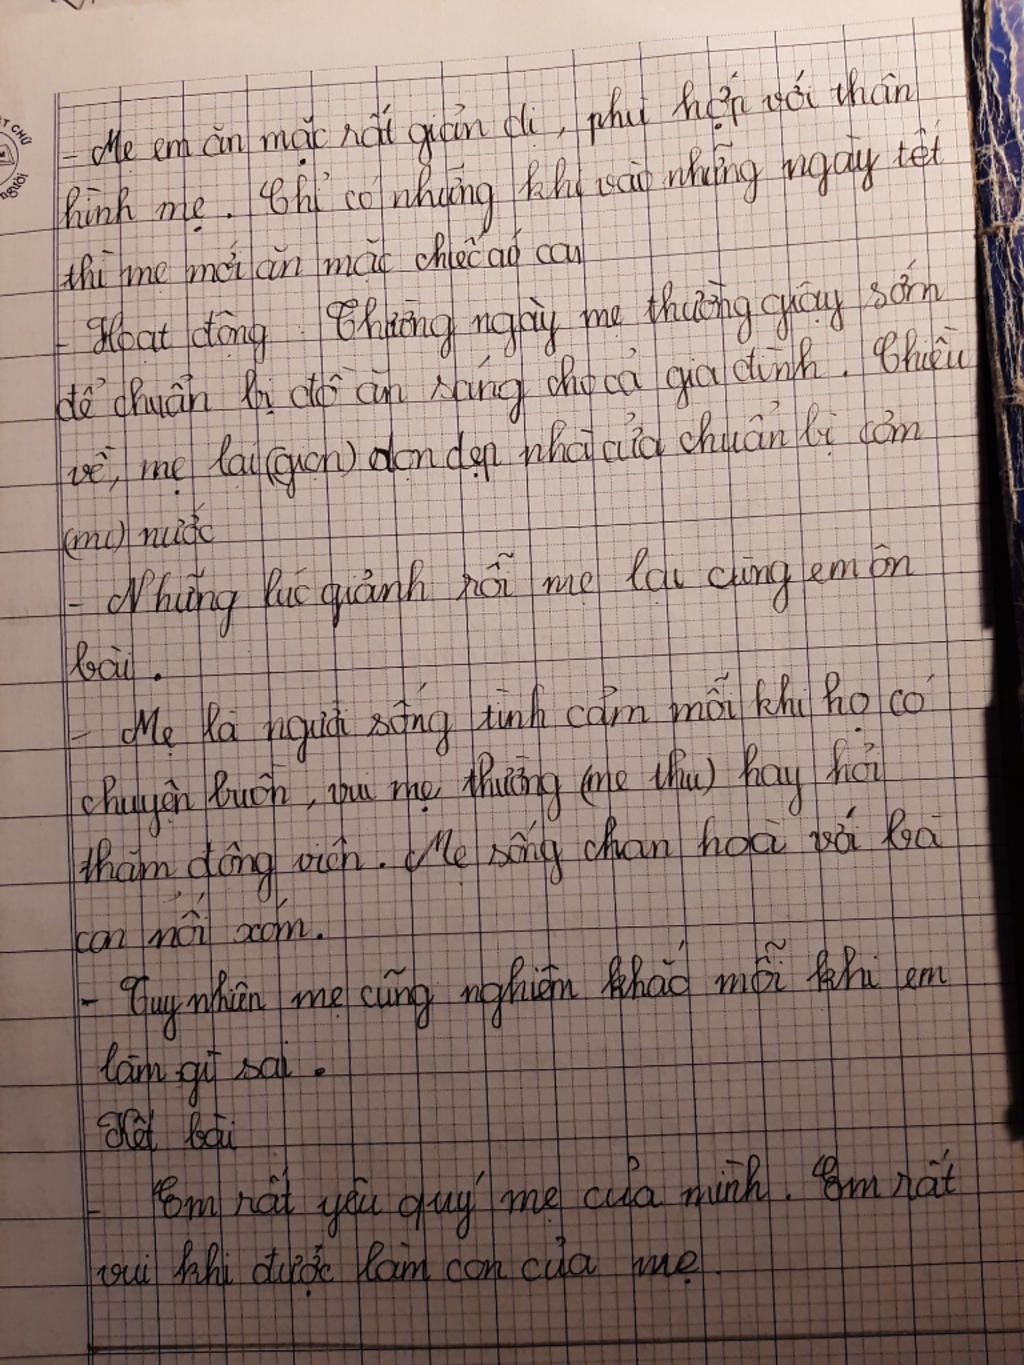 T CHỮ
NGƯỜI
- Mẹ em ăn mặc rất giản dị, phù hợp với thân
hình mẹ. Chỉ có những khi vào những ngày tết
thì mẹ mới ăn mặc chiếc áo
- Hoạt động. Thường ngày mẹ thường giậy sớm
để chuẩn bị đồ ăn sáng cho cả gia đình. Chiều
về, mẹ lại (giọn) dọn dẹp nhà cửa chuẩn bị cơm
(mc) nước
- Những lúc giảnh rỗi mẹ lại cùng em ôn
bài.
- Mẹ là người sống tình cảm mỗi khi họ có
chuyện buồn, vui mẹ thường (mẹ thư) hay hỏi
thăm động viên. Mẹ sống chan hoà với bà
con nối xóm.
- Tuy nhiên mẹ cũng nghiêm khắc mỗi khi em
làm gì sai.
Kết bài
- Em rất yêu quý mẹ của mình. Em rất
vui khi được làm con của mẹ.